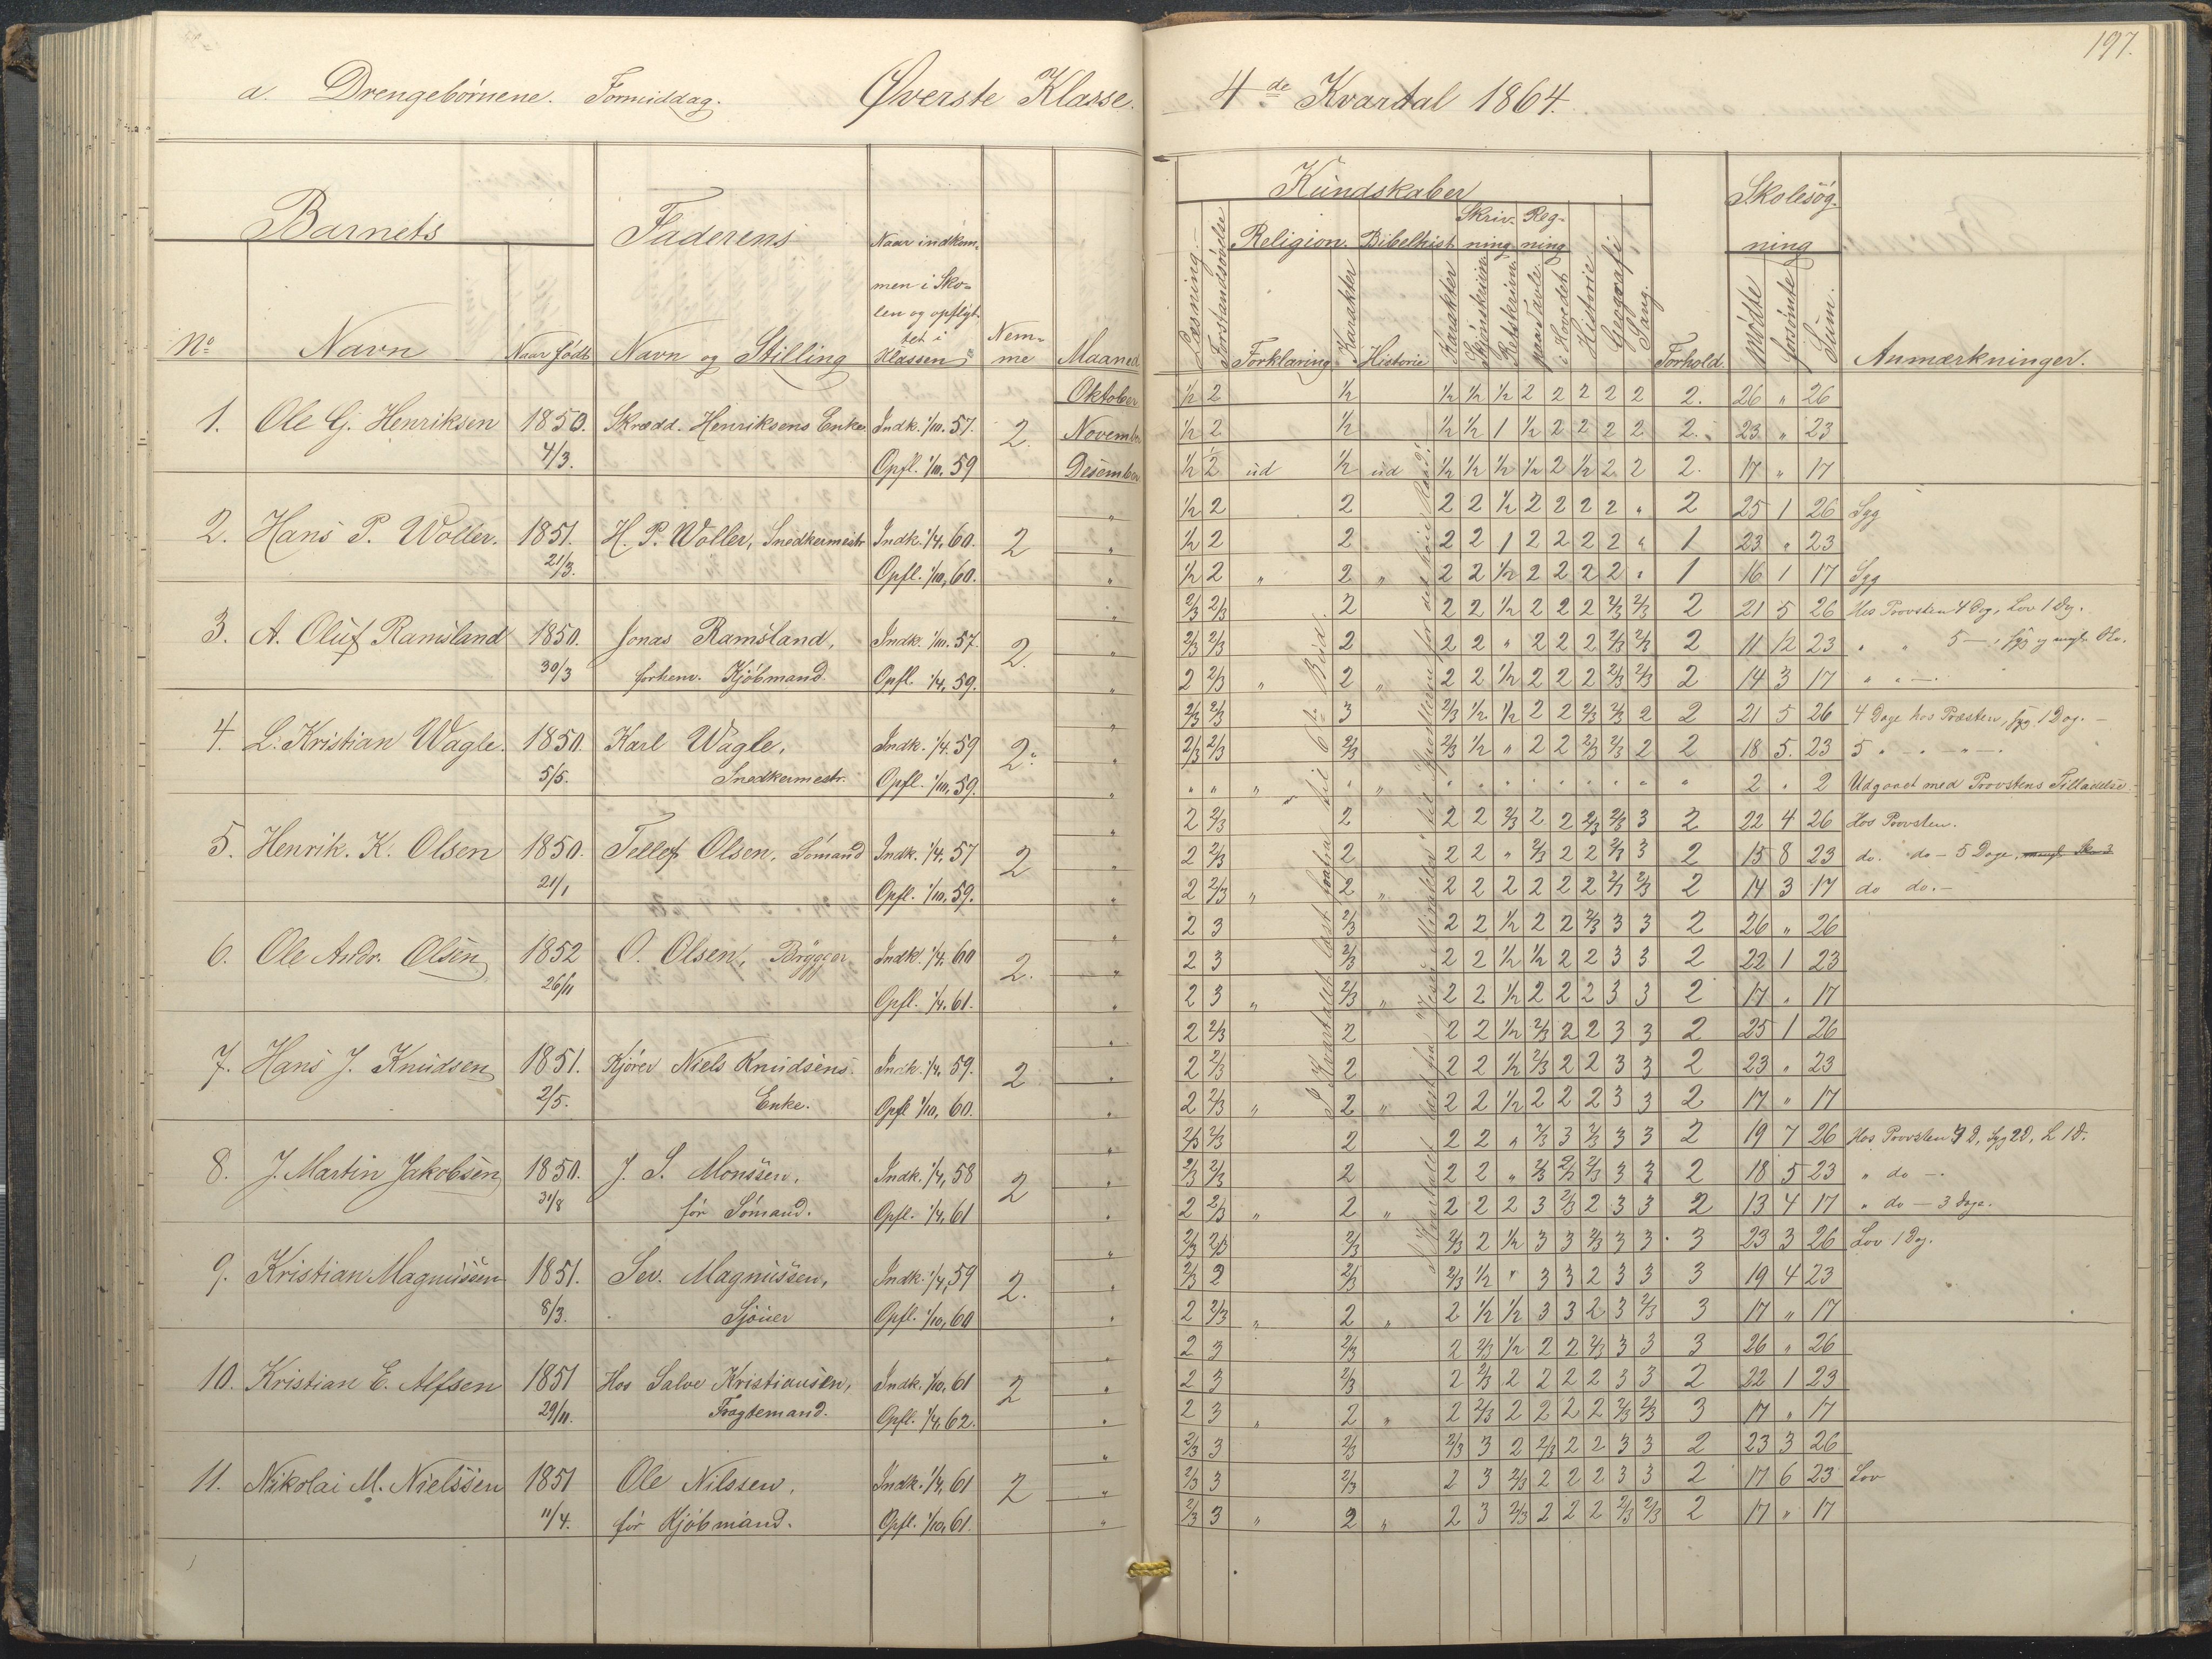 a. Drengebörnene. Formiddag. Øverste Klasse.
4de Kvartal 1864.
197.
Barnets
Faderens
Naar indkom-
men i Sko-
len og opflyt-
tet i
Klassen
Nem-
me
Maaned
No
Navn
Naar født
Navn og Stilling
Kundskaber
Læsning.
Forstandsøvelse
Religion.
Forklaring
Karakter
Bibelhist.
Historie
Karakter
Skriv-
ning
Skjönskrivn.
Retskrivn.
Reg-
ning
paa Tavle
i Hovedet
Historie
Geografi
Sang.
Forhold.
Skolesög-
ning
Mödte
forsömte
Sum.
Anmærkninger.
1. Ole G. Henriksen 1850. 4/3. Skrædd. Henriksens Enke. Indk. 1/10. 57. Opfl. 1/10. 59 2.
Oktober 1/2 2 1/2 1/2 1/2 1/2 2 2 2 2 2 2. 26 " 26
November 1/2 2 1/2 1/2 1/2 1 1/2 2 2 2 2 2. 23 " 23
Desember 1/2 2 ud 1/2 ud 1/2 1/2 1/2 1/2 2 1/2 2 2 2. 17 " 17
2. Hans P. Woller. 1851. 21/3. H. P. Woller, Snedkermestr Indk. 1/4, 60. Opfl. 1/10, 60. 2
" 1/2 2 2 2 2 1/2 2 2 2 2 " 2 25 1 26 Syg
" 1/2 2 2 2 2 1 2 2 2 2 " 1 23 " 23
" 1/2 2 " 2 " 2 2 1/2 2 2 2 2 " 1 16 1 17 Syg
3. A. Oluf Ramsland 1850. 30/3 Jonas Ramsland, forhenv. Kjöbmand. Indk. 1/10. 57. Opfl. 1/4, 59. 2.
" 2/3 2/3 2 2 2 1/2 2 2 2 2/3 2/3 2 21 5 26 Hos Provsten 4 Dg, Lov 1 Dg.
" 2/3 2/3 2 2 2 " 2 2 2 2/3 2/3 2 11 12 23 " " 5 —
" 2 2/3 " 2 " 2 2 1/2 2 2 2 2/3 2/3 2 14 3 17 " " —
4. L. Kristian Wagle. 1850. 5/5. Karl Wagle, Snedkermestr. Indk. 1/4. 59 Opfl. 1/10, 59. 2.
" 2/3 2/3 3 2/3 1/2 1/2 2 2 2/3 2/3 2 2 21 5 26 4 Dage hos Præsten, syg 1 Dag. —
" 2/3 2/3 2/3 2/3 1/2 " 2 2 2/3 2/3 2 2 18 5. 23 5 " — " —
" " " " " " " " " " " " " " " " 2 " 2 Udgaaet med Provstens Tilladelse.
5. Henrik. K. Olsen 1850. 21/1 Tellef Olsen, Sömand Indk. 1/4, 57 Opfl. 1/10, 59. 2
" 2 2/3 2 2 2 2/3 2 2 2/3 2/3 3 2 22 4 26 Hos Provsten.
" 2 2/3 2 2 2 " 2/3 2 2 2/3 3 2 15 8 23 do. do — 5 Dage,
" 2 2/3 " 2 " 2 2 2 2 2 2 2/3 2/3 2 14 3 17 do do. —
6. Ole Andr. Olsen 1852 26/11 O. Olsen, Brygger Indk. 1/4, 60 Opfl. 1/4. 61. 2.
" 2 3 2/3 2 2 1/2 2 2 2/3 3 3 2 26 " 26
" 2 3 2/3 2 2 1/2 1/2 2 2 3 3 2 22 1 23
" 2 3 " 2/3 " 2 2 1/2 2 2 2 3 3 2 17 " 17
7. Hans J. Knudsen 1851. 2/5. Kjörer Niels Knudsens Enke. Indk. 1/4, 59. Opfl 1/10, 60. 2
" 2 2/3 2 2 2 1/2 2/3 2 2 3 3 2 25 1 26
" 2 2/3 2 2 2 1/2 2/3 2 2 3 3 2 23 " 23
" 2 2/3 " 2 " 2 2 1/2 2 2 2 3 3 2 17 " 17
8. J. Martin Jakobsen 1850. 31/8 J. S. Monssen, för Sömand. Indk. 1/4, 58 Opfl. 1/4, 61 2
" 2/3 2/3 2 2 2 " 2/3 3 2/3 3 3 2 19 7 26 Hos Provsten 4 D, Syg 2 D, L 1 D.
" 2/3 2/3 2 2 2 " 2/3 2/3 2/3 3 3 2 18 5 23 " do —.
" 2 2/3 " 2 " 2 2 2 3 2/3 2 3 3 2 13 4 17 " do — 3 Dage.
9. Kristian Magnussen 1851. 8/3. Sev. Magnussen, Sjöuer Indk. 1/4, 59 Opfl. 1/10, 60 2.
" 2/3 2/3 2/3 2/3 2 1/2 3 3 2/3 3 3 3 23 3 26 Lov 1 Dg.
" 2/3 2 2/3 2/3 1/2 " 3 3 2 3 3 3 19 4 23
" 2 2/3 " 2 " 2 1/2 1/2 3 3 2 3 2/3 3 17 " 17
10. Kristian E. Alfsen 1851 29/11. Hos Salve Kristiansen, Fragtemand. Indk. 1/10, 61 Opfl. 1/4, 62. 2
" 2 3 2/3 2 2/3 1/2 2 2 2/3 3 3 3 26 " 26
" 2 3 2/3 2 2/3 2 2 2 2 3 3 2 22 1 23
" 2 3 " 2 " 2 2/3 2 2 2 2 2/3 2/3 3 17 " 17
11. Nikolai M. Nielssen 1851 11/4. Ole Nilssen, för Kjöbmand. Indk. 1/4, 61 Opfl. 1/10, 61. 2
" 2/3 3 2/3 2/3 3 2 2/3 2 2 3 3 2 23 3 26
" 2/3 3 2/3 2 3 2/3 2 2 2 3 3 2 17 6 23 Lov
" 2/3 3 " 2 " 2 3 2/3 2 2 2 2/3 2/3 2 17 " 17
I Kvartalet læst forfra til 6te Bud.